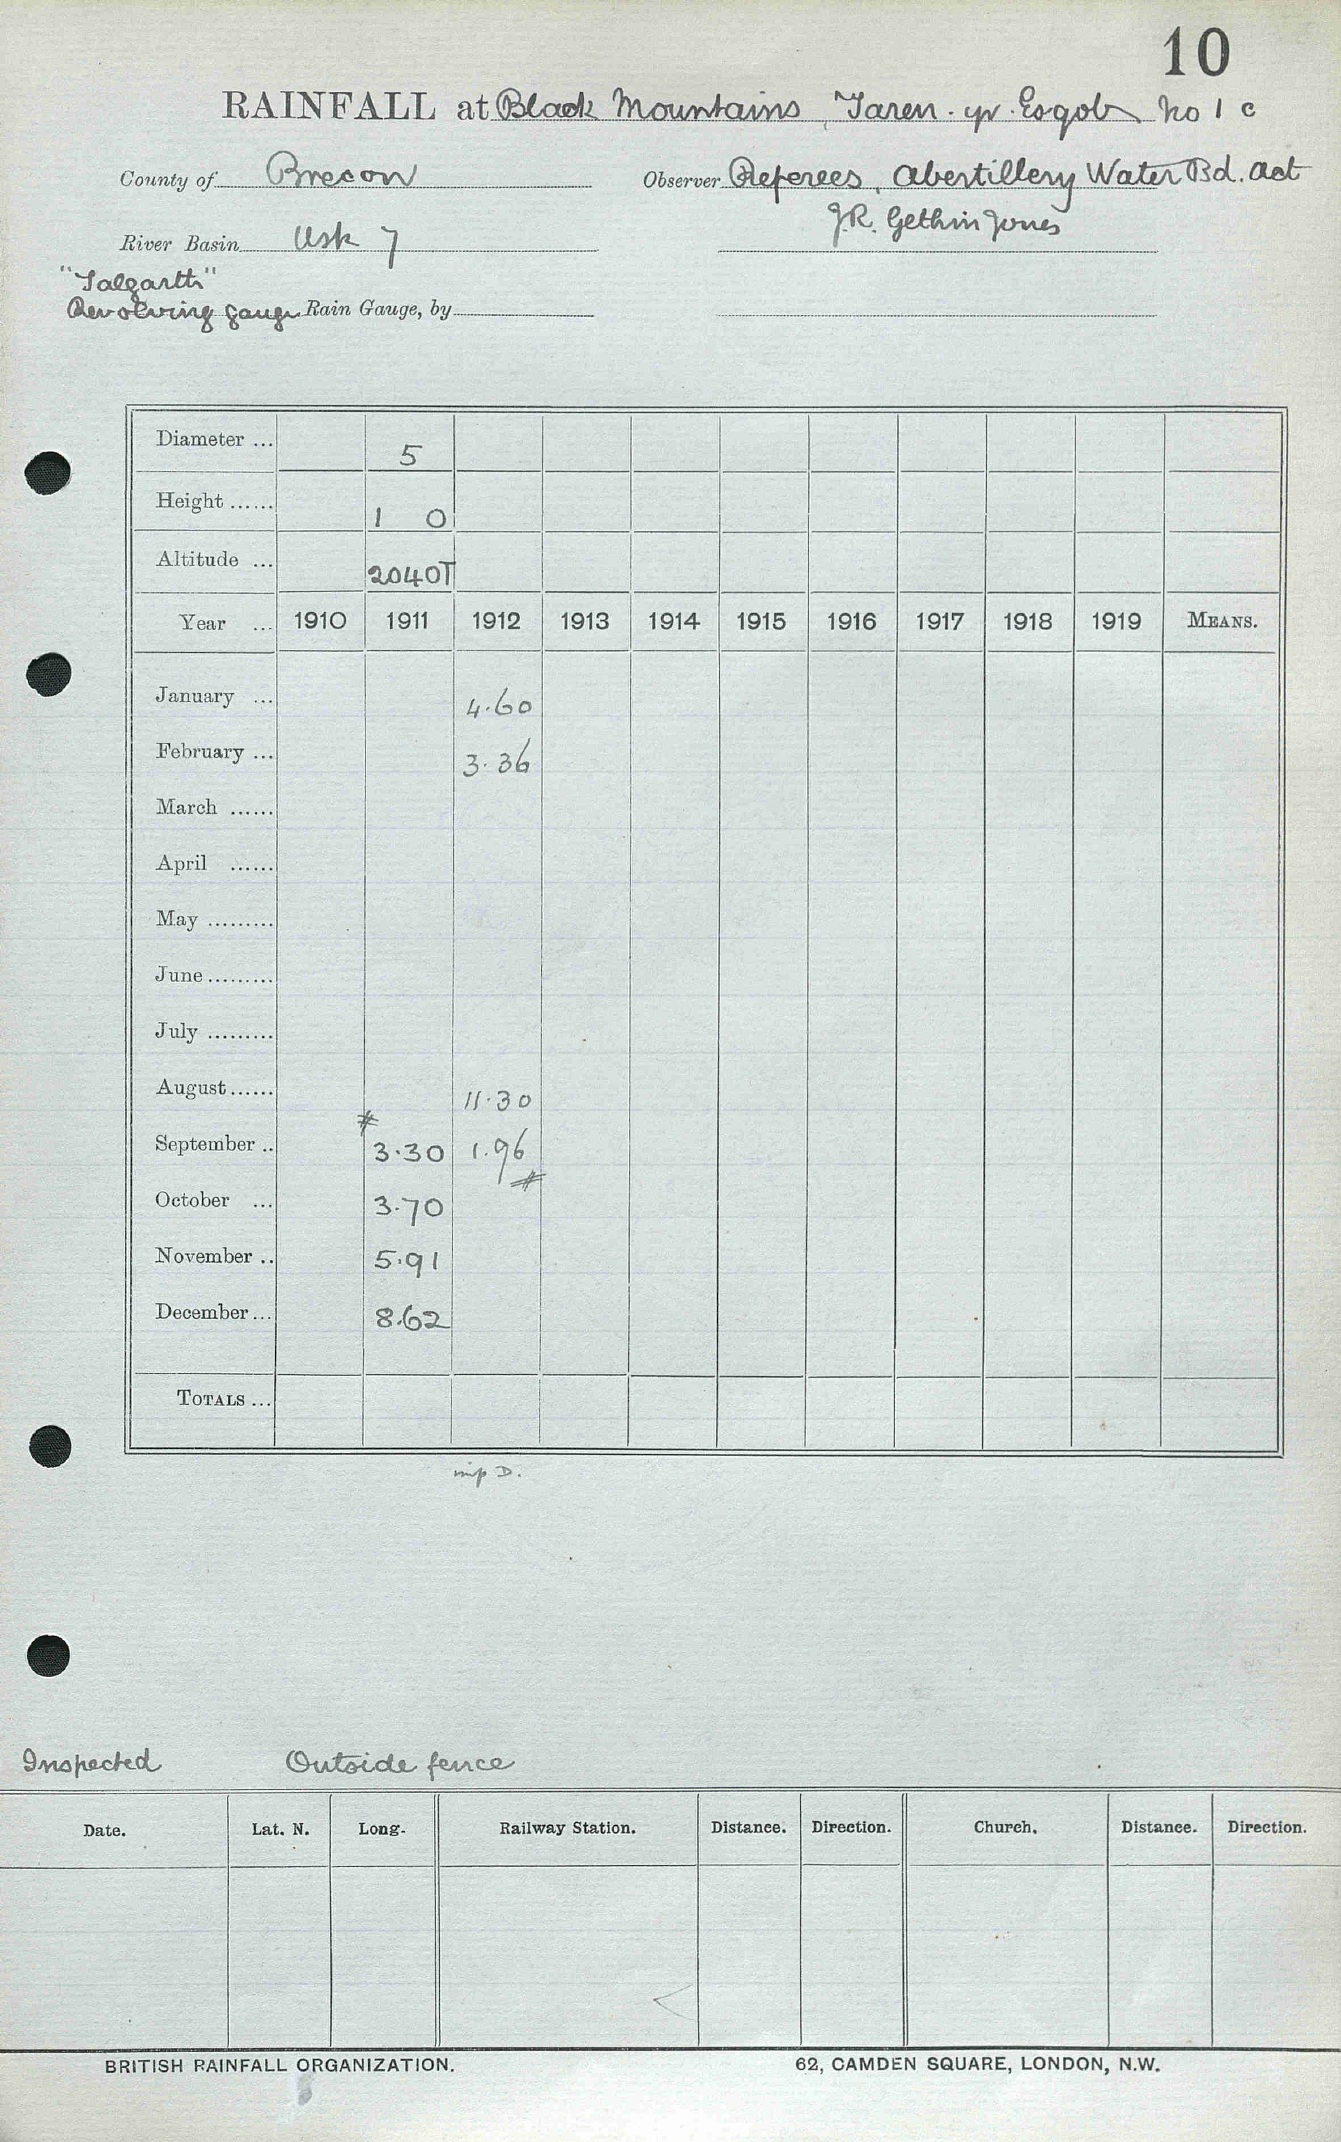 10
RAINFALL at Black Mountains, Taren. yr. Esgob No 1 c
County of Brecon Observer Referees, Abertillery Water Bd. Act
River Basin Usk 7 J.R. Gethin Jones
"Talgarth"
Revolving gauge Rain Gauge, by
Diameter ... 5
Height ...... 1 0
Altitude ... 2040T
Year ... 1910 1911 1912 1913 1914 1915 1916 1917 1918 1919 MEANS.
January ... 4.60
February ... 3.36
March ......
April ......
May .........
June .........
July .........
August ...... 11.30
#
September .. 3.30 1.96
#
October ... 3.70
November .. 5.91
December ... 8.62
TOTALS ...
D.
Inspected Outside fence
Date. Lat. N. Long. Railway Station. Distance. Direction. Church. Distance. Direction.
BRITISH RAINFALL ORGANIZATION. 62, CAMDEN SQUARE, LONDON, N.W.